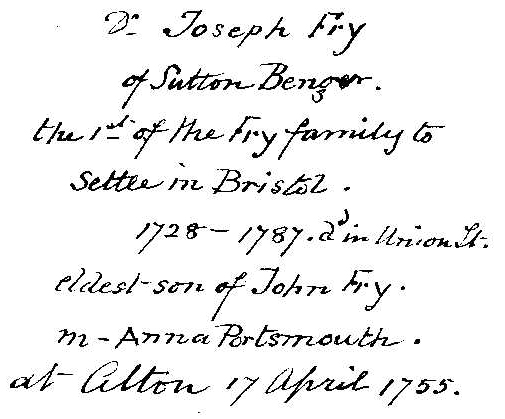 Dr Joseph Fry
of Sutton Benger.
the 1st of the Fry family to
Settle in Bristol.
1728 - 1787. dd in Union St.
eldest son of John Fry.
m - Anna Portsmouth.
at Alton 17 April 1755.